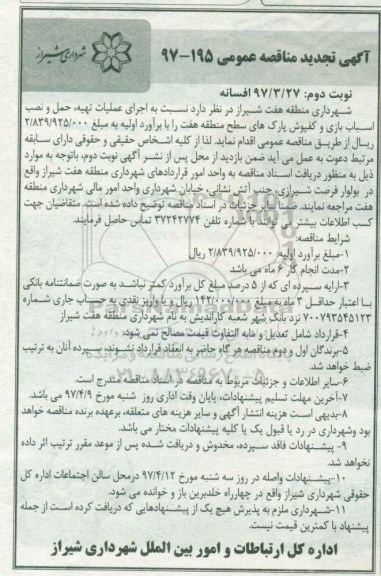 شهرداری شیراز
آگهی تجدید مناقصه عمومی ۱۹۵-۹۷
نوبت دوم: ۹۷/۳/۲۷ افسانه
شهرداری منطقه هفت شیراز در نظر دارد نسبت به اجرای عملیات تهیه، حمل و نصب
اسباب بازی و کفپوش پارک های سطح منطقه هفت را با برآورد اولیه به مبلغ ۲/۸۳۹/۹۲۵/۰۰۰
ریال از طریق مناقصه عمومی اقدام نماید. لذا از کلیه اشخاص حقیقی و حقوقی دارای سابقه
مرتبط دعوت به عمل می آید ضمن بازدید از محل پس از نشر آگهی نوبت دوم، باتوجه به موارد
ذیل به منظور دریافت اسناد مناقصه به واحد امور قراردادهای شهرداری منطقه هفت شیراز واقع
در بولوار فرصت شیرازی، جنب آتش نشانی، خیابان شهرداری واحد امور مالی شهرداری منطقه
هفت مراجعه نمایند. ضمنا سایر جزئیات در اسناد مناقصه توضیح داده شده است. متقاضیان جهت
کسب اطلاعات بیشتر می توانند با شماره تلفن ۳۷۲۴۲۷۷۴ تماس حاصل فرمایند.
شرایط مناقصه:
۱-مبلغ برآورد اولیه: ۲/۸۳۹/۹۲۵/۰۰۰ ریال
۲-مدت انجام کار ۶ ماه می باشد
۳-ارایه سپرده ای که از ۵ درصد مبلغ کل برآورد کمتر نباشد به صورت ضمانتنامه بانکی
با اعتبار حداقل ۳ ماه به مبلغ ۱۴۲/۰۰۰/۰۰۰ ریال و یا واریز نقدی به حساب جاری شماره
۷۰۰۷۹۳۵۴۵۱۲۳ نزد بانک شهر شعبه کاراندیش به نام شهرداری منطقه هفت شیراز
۴-قرارداد شامل تعدیل و مابه التفاوت قیمت مصالح نمی شود.
۵-برندگان اول و دوم مناقصه هر گاه حاضر به انعقاد قرارداد نشوند، سپرده آنان به ترتیب
ضبط خواهد شد.
۶-سایر اطلاعات و جزئیات مربوط به مناقصه در اسناد مناقصه مندرج است.
۷-آخرین مهلت تسلیم پیشنهادات، پایان وقت اداری روز شنبه مورخ ۹۷/۴/۹ می باشد.
۸-بدیهی است هزینه انتشار آگهی و سایر هزینه های متعلقه، برعهده برنده مناقصه خواهد
بود وشهرداری در رد یا قبول یک یا کلیه پیشنهادات مختار می باشد.
۹- پیشنهادات فاقد سپرده، مخدوش و دریافت شده پس از موعد مقرر ترتیب اثر داده
نخواهد شد.
۱۰-پیشنهادات واصله در روز سه شنبه مورخ ۹۷/۴/۱۲ درمحل سالن اجتماعات اداره کل
حقوقی شهرداری شیراز واقع در چهارراه خلدبرین باز و خوانده می شود.
۱۱-شهرداری ملزم به پذیرش هیچ یک از پیشنهادهایی که دریافت کرده است از جمله
پیشنهاد با کمترین قیمت نیست.
اداره کل ارتباطات و امور بین الملل شهرداری شیراز